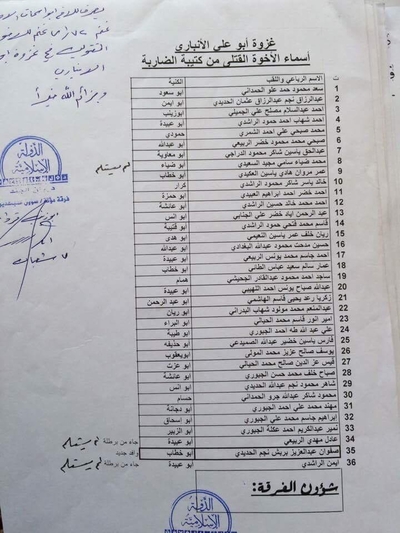 غزوة أبو علي الأنباري
أسماء الأخوة القتلى من كتيبة الضاربة
ت الاسم الرباعي واللقب الكنية
1 سعد محمود حمد علو الحمداني ابو سعود
2 عبدالرزاق نجم عبدالرزاق عثمان الحديدي ابو ايمن
3 احمد عبدالسلام مصلح علي الجميلي ابوزينب
4 احمد شهاب احمد حمود الراشدي ابو عبيدة
5 محمد صبحي علي احمد الشمري حمودي
6 صبحي محمد محمود خضر الربيعي ابو عبدالله
7 عبدالحق ياسين شاكر محمود الدراجي ابو معاوية
8 محمد ضياء سامي مجيد السعيدي ابو ضياء لم يستلم
9 عمر مروان هادي ياسين العكيدي ابو خطاب
10 خالد ياسر شاكر محمود الراشدي كرار
11 احمد خضر احمد ابراهيم العبيدي ابو حمزة
12 احمد محمد خالد حسين الراشدي ابو عائشة
13 عبد الرحمن اياد خضر علي الجنابي ابو انس
14 قاسم محمد فتحي حمود الراشدي ابو قتيبة
15 ريان خلف عمر ياسين النعيمي ابو هدى
16 حسين مدحت محمود عبدالله البغدادي ابو عبدالله
17 احمد محمد جاسم يونس الربيعي ابو عبيدة
18 عمار سالم سعيد عباس الطائي ابو خطاب
19 ساجد احمد محمود عبدالقادر الجحيشي همام
20 عبدالله صباح يونس احمد اللهيبي ابو عبيدة
21 زكريا رعد يحيى قاسم الهاشمي ابو عبد الرحمن
22 عبدالمنعم محمد مولود شهاب البدراني ابو ريان
23 امير انور قاسم محمد الحيالي ابو البراء
24 علي عبد الله طه احمد الجبوري ابو طيبة
25 فارس ياسين خضير عبدالله الصميدعي ابو حذيفه
26 يوسف صالح عزيز محمد المولى ابويعقوب
27 قيس عز الدين صالح محمد الحيالي ابو عزت
28 صباح خلف محمد حسن الجبوري ابو عائشة
29 شاهر محمود نجم عبدالله الحديدي ابو انس
30 محمود شاكر عبدالله جرو الحمداني حسام
31 مهند محمد علي احمد الجبوري ابو دجانة
32 ابراهيم جاسم محمد علي الجبوري ابو إسحاق
33 نمير عبدالكريم احمد عكلة الجبوري ابو الزبير
34 عادل مهدي الربيعي ابو عبيدة جاء من برطلة لم يستلم
35 صفوان عبدالعزيز بريش نجم الحديدي ابو خطاب وافد جديد
36 ايمن الراشدي ابو عبيدة جاء من برطلة لم يستلم
شؤون الفرقة:
الدولة الإسلامية
الدولة الإسلامية